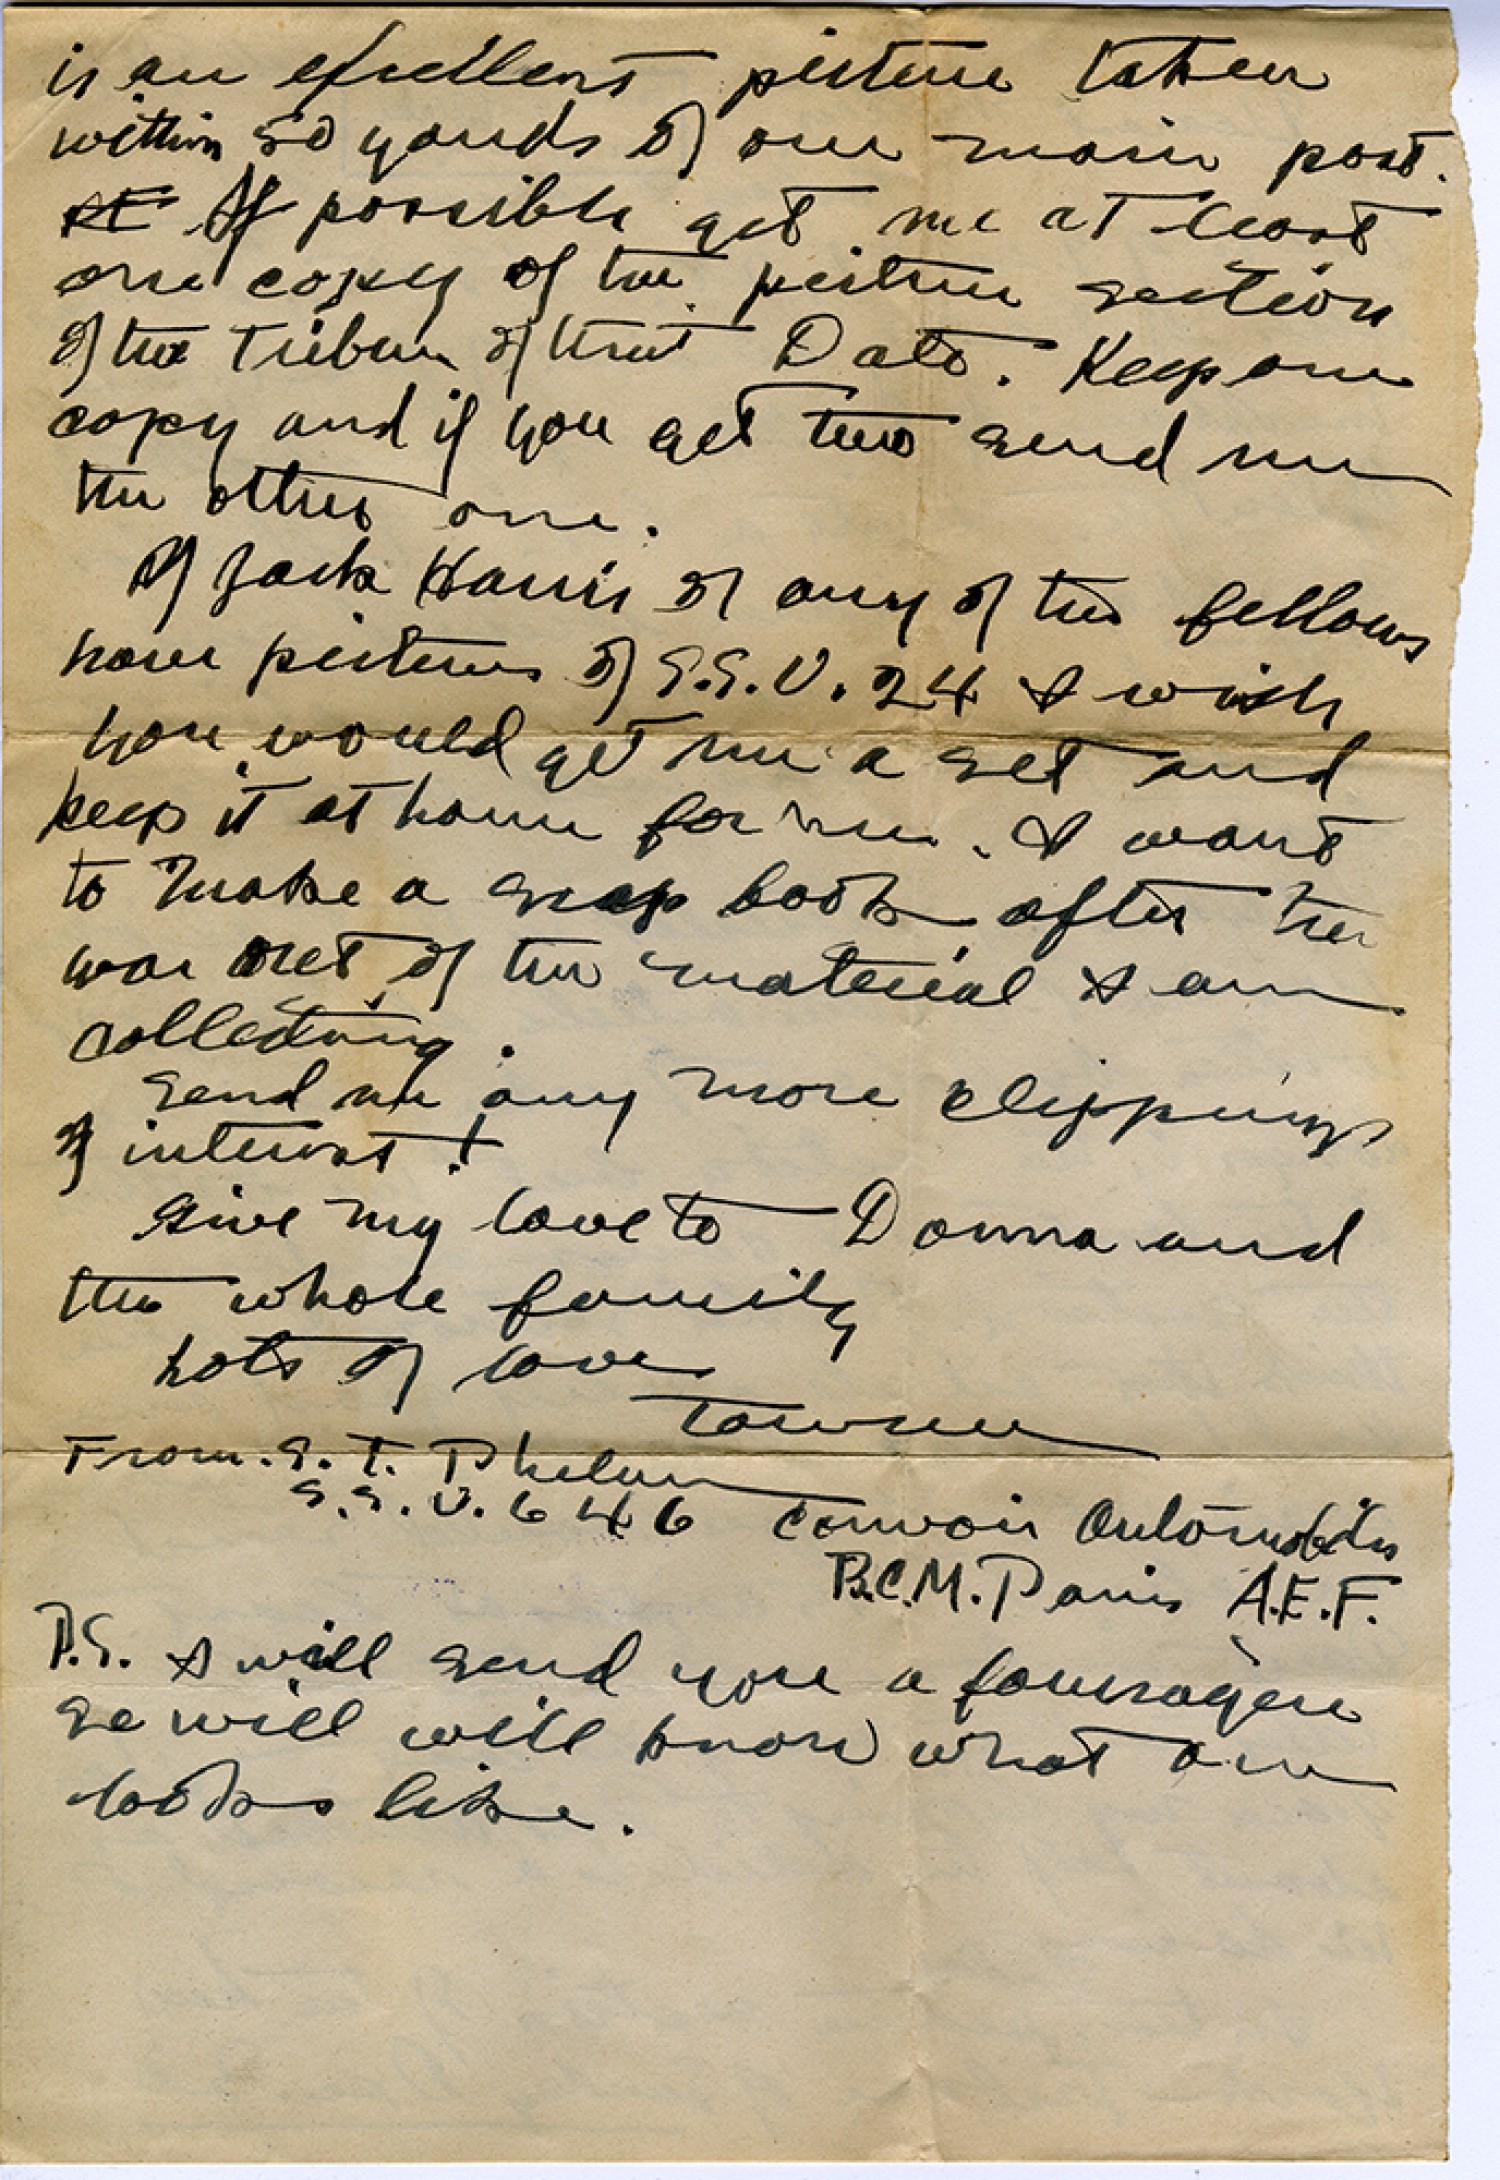 is an excellent picture taken
within 50 yards of our main post.
If possible get me at least
one copy of the picture section
of the Tribune of that Date. Keep one
copy and if you get two send me
the other one.
If Jack Harris or any of the fellows
have pictures of S.S.U. 24 I wish
you would get me a set and
keep it at home for me. I want
to make a scrap book after the
war out of the material I am
collecting.
Send me any more clippings
of interest!
Give my love to Donna and
the whole family
Lots of love
Towner
From. S. T. Phelan
S.S.U. 646 Convois Automobiles
B.C.M. Paris A.E.F.
P.S. I will send you a fourragere
so will will know what one
looks like.